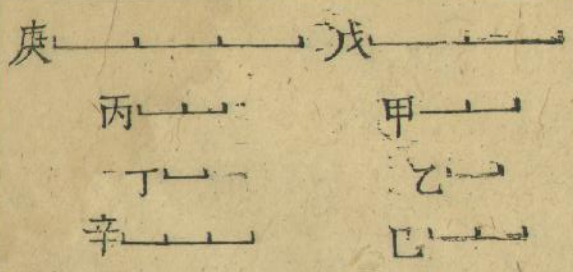 庚 戊
丙 甲
丁 乙
辛 己